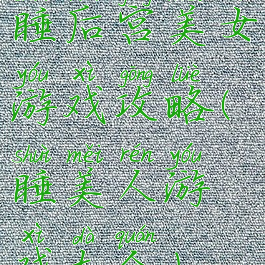 睡后宫美女
yóu xì gōng lüè
游戏攻略(
shuì měi rén yóu
睡美人游
xì dà quán
戏大全)